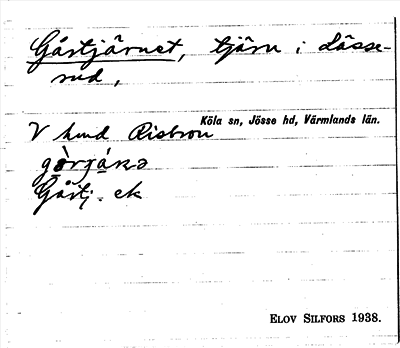 Gåstjärnet, tjärn i Lässe-
rud,
Köla sn, Jösse hd, Värmlands län.
V hmd
Gåstj. ek
ELOV SILFORS 1938.